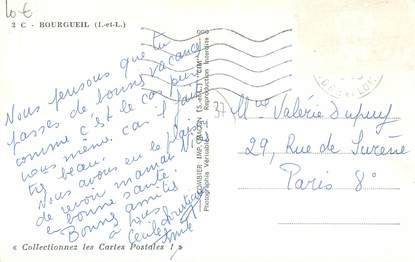 10 €
2 C - BOURGUEIL (I.-et-L.)
Nous pensons que tu
passes de bonnes vacances
comme c'est le cas pour
nous même, car il fait
très beau.
Nous avons eu le plaisir
de revoir maman Nini
en bonne santé.
Bonnes amitiés
à tous
Cécile
COMBIER IMP. MACON (S.-et-L.) "CIM"
Photographie Véritable Reproduction Interdite
37
Mlle Valérie Dupuy
29, Rue de Surène
Paris 8°
« Collectionnez les Cartes Postales ! »